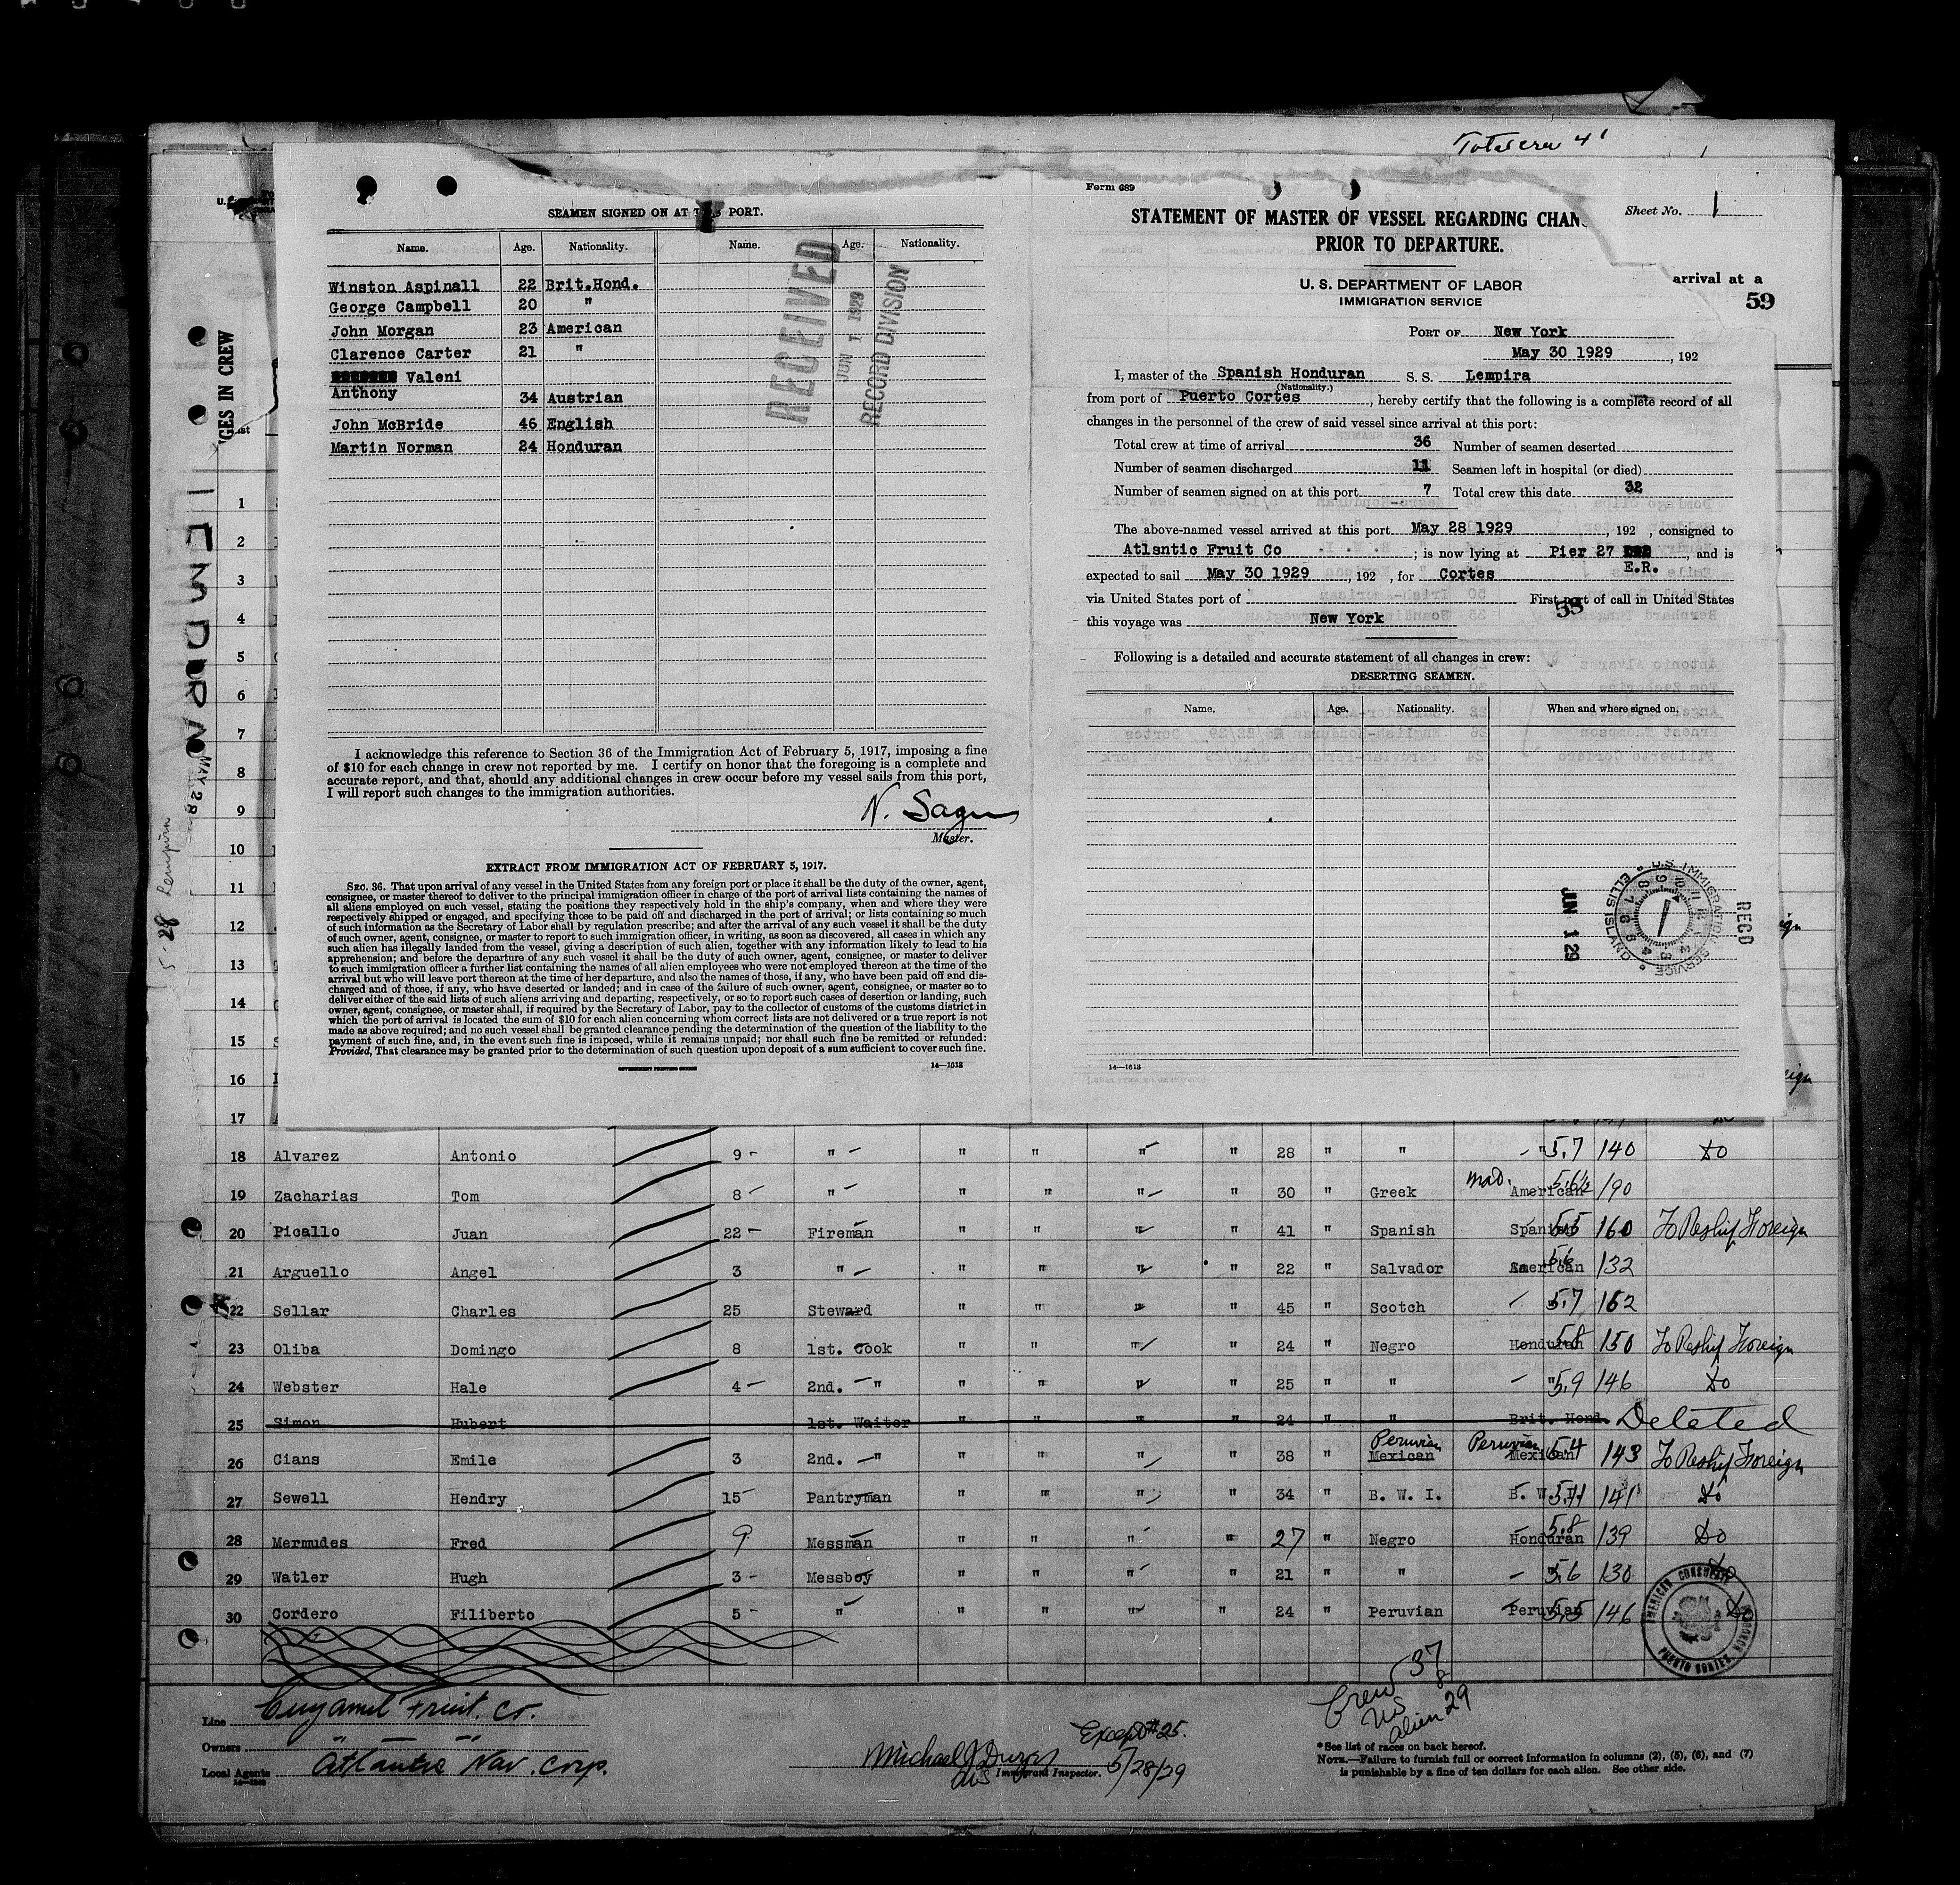 Sheet No. 1
arrival at a
59
GES IN CREW
MAY 28
5-28 Lempira
SEAMEN SIGNED ON AT THIS PORT.
Name. Age. Nationality. Name. Age. Nationality.
Winston Aspinall 22 Brit.Hond.
George Campbell 20 "
John Morgan 23 American
Clarence Carter 21 "
Valeni
Anthony 34 Austrian
John McBride 46 English
Martin Norman 24 Honduran
RECEIVED
JUN 1 1929
RECORD DIVISION
I acknowledge this reference to Section 36 of the Immigration Act of February 5, 1917, imposing a fine
of $10 for each change in crew not reported by me. I certify on honor that the foregoing is a complete and
accurate report, and that, should any additional changes in crew occur before my vessel sails from this port,
I will report such changes to the immigration authorities.
N. Sagen
Master.
EXTRACT FROM IMMIGRATION ACT OF FEBRUARY 5, 1917.
SEC. 36. That upon arrival of any vessel in the United States from any foreign port or place it shall be the duty of the owner, agent,
consignee, or master thereof to deliver to the principal immigration officer in charge of the port of arrival lists containing the names of
all aliens employed on such vessel, stating the positions they respectively hold in the ship's company, when and where they were
respectively shipped or engaged, and specifying those to be paid off and discharged in the port of arrival; or lists containing so much
of such information as the Secretary of Labor shall by regulation prescribe; and after the arrival of any such vessel it shall be the duty
of such owner, agent, consignee, or master to report to such immigration officer, in writing, as soon as discovered, all cases in which any
such alien has illegally landed from the vessel, giving a description of such alien, together with any information likely to lead to his
apprehension; and before the departure of any such vessel it shall be the duty of such owner, agent, consignee, or master to deliver
to such immigration officer a further list containing the names of all alien employees who were not employed thereon at the time of the
arrival but who will leave port thereon at the time of her departure, and also the names of those, if any, who have been paid off and dis-
charged and of those, if any, who have deserted or landed; and in case of the failure of such owner, agent, consignee, or master so to
deliver either of the said lists of such aliens arriving and departing, respectively, or so to report such cases of desertion or landing, such
owner, agent, consignee, or master shall, if required by the Secretary of Labor, pay to the collector of customs of the customs district in
which the port of arrival is located the sum of $10 for each alien concerning whom correct lists are not delivered or a true report is not
made as above required; and no such vessel shall be granted clearance pending the determination of the question of the liability to the
payment of such fine, and, in the event such fine is imposed, while it remains unpaid; nor shall such fine be remitted or refunded:
Provided, That clearance may be granted prior to the determination of such question upon deposit of a sum sufficient to cover such fine.
GOVERNMENT PRINTING OFFICE 14—1613
Form 689
STATEMENT OF MASTER OF VESSEL REGARDING CHAN
PRIOR TO DEPARTURE.
U. S. DEPARTMENT OF LABOR
IMMIGRATION SERVICE
PORT OF New York
May 30 1929, 192
I, master of the Spanish Honduran S. S. Lempira
(Nationality.)
from port of Puerto Cortes, hereby certify that the following is a complete record of all
changes in the personnel of the crew of said vessel since arrival at this port:
Total crew at time of arrival 36 Number of seamen deserted
Number of seamen discharged 11 Seamen left in hospital (or died)
Number of seamen signed on at this port 7 Total crew this date 32
The above-named vessel arrived at this port May 28 1929, 192 , consigned to
Atlsntic Fruit Co ; is now lying at Pier 27 E.R., and is
expected to sail May 30 1929, 192 , for Cortes
via United States port of First port of call in United States
58
this voyage was New York
Following is a detailed and accurate statement of all changes in crew:
DESERTING SEAMEN.
Name. Age. Nationality. When and where signed on.
U.S. IMMIGRATION SERVICE ELLIS ISLAND
RECD
JUN 1 29
14—1613
1
2
3
4
5
6
7
8
9
10
11
12
13
14
15
16
17
18 Alvarez Antonio 9 " " " " " 28 " " " 5.7 140 do
19 Zacharias Tom 8 " " " " " 30 " Greek American 5.6½ 190
20 Picallo Juan 22 Fireman " " " " 41 " Spanish Spanish 5.5 160 To Reship Foreign
21 Arguello Angel 3 " " " " " 22 " Salvador American 5.6 132
22 Sellar Charles 25 Steward " " " " 45 " Scotch 5.7 152
23 Oliba Domingo 8 1st. Cook " " " " 24 " Negro Honduran 5.8 150 To Reship Foreign
24 Webster Hale 4 2nd. " " " " " 25 " " " 5.9 146 do
25 Simon Hubert 1st. Waiter " " " " 24 " " Brit. Hond. Deleted
26 Cians Emile 3 2nd. " " " " " 38 " Mexican Peruvian Mexican Peruvian 5.4 143 To Reship Foreign
27 Sewell Hendry 15 Pantryman " " " " 34 " B. W. I. B. W. I. 5.11 141 do
28 Mermudes Fred 9 Messman " " " " 27 " Negro Honduran 5.8 139 do
29 Watler Hugh 3 Messboy " " " " 21 " " 5.6 130 do
30 Cordero Filiberto 5 " " " " " 24 " Peruvian Peruvian 5.5 146 do
AMERICAN CONSULATE PUERTO CORTES, HONDURAS
Line Cuyamel Fruit. Co.
Owners " "
Local Agents Atlantic Nav. Corp.
Except #25.
Immigrant Inspector. 5/28/29
Crew 37
US 8
alien 29
*See list of races on back hereof.
NOTE.—Failure to furnish full or correct information in columns (2), (5), (6), and (7)
is punishable by a fine of ten dollars for each alien. See other side.